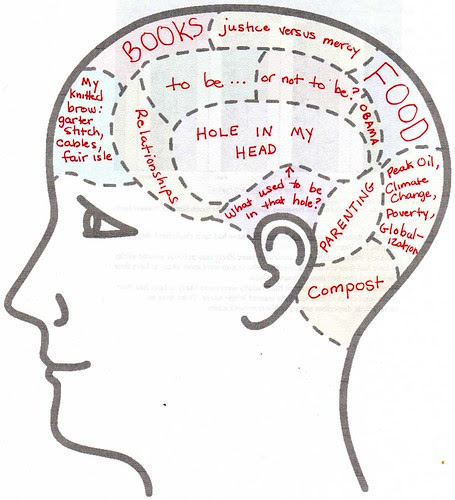 BOOKS
justice versus mercy
FOOD
My
knitted
brow:
garter
stitch,
cables,
fair isle
to be...
or not to be?
OBAMA
Relationships
HOLE IN MY
HEAD
What used to be
in that hole?
PARENTING
Peak Oil,
Climate
Change,
Poverty,
Global-
ization
Compost